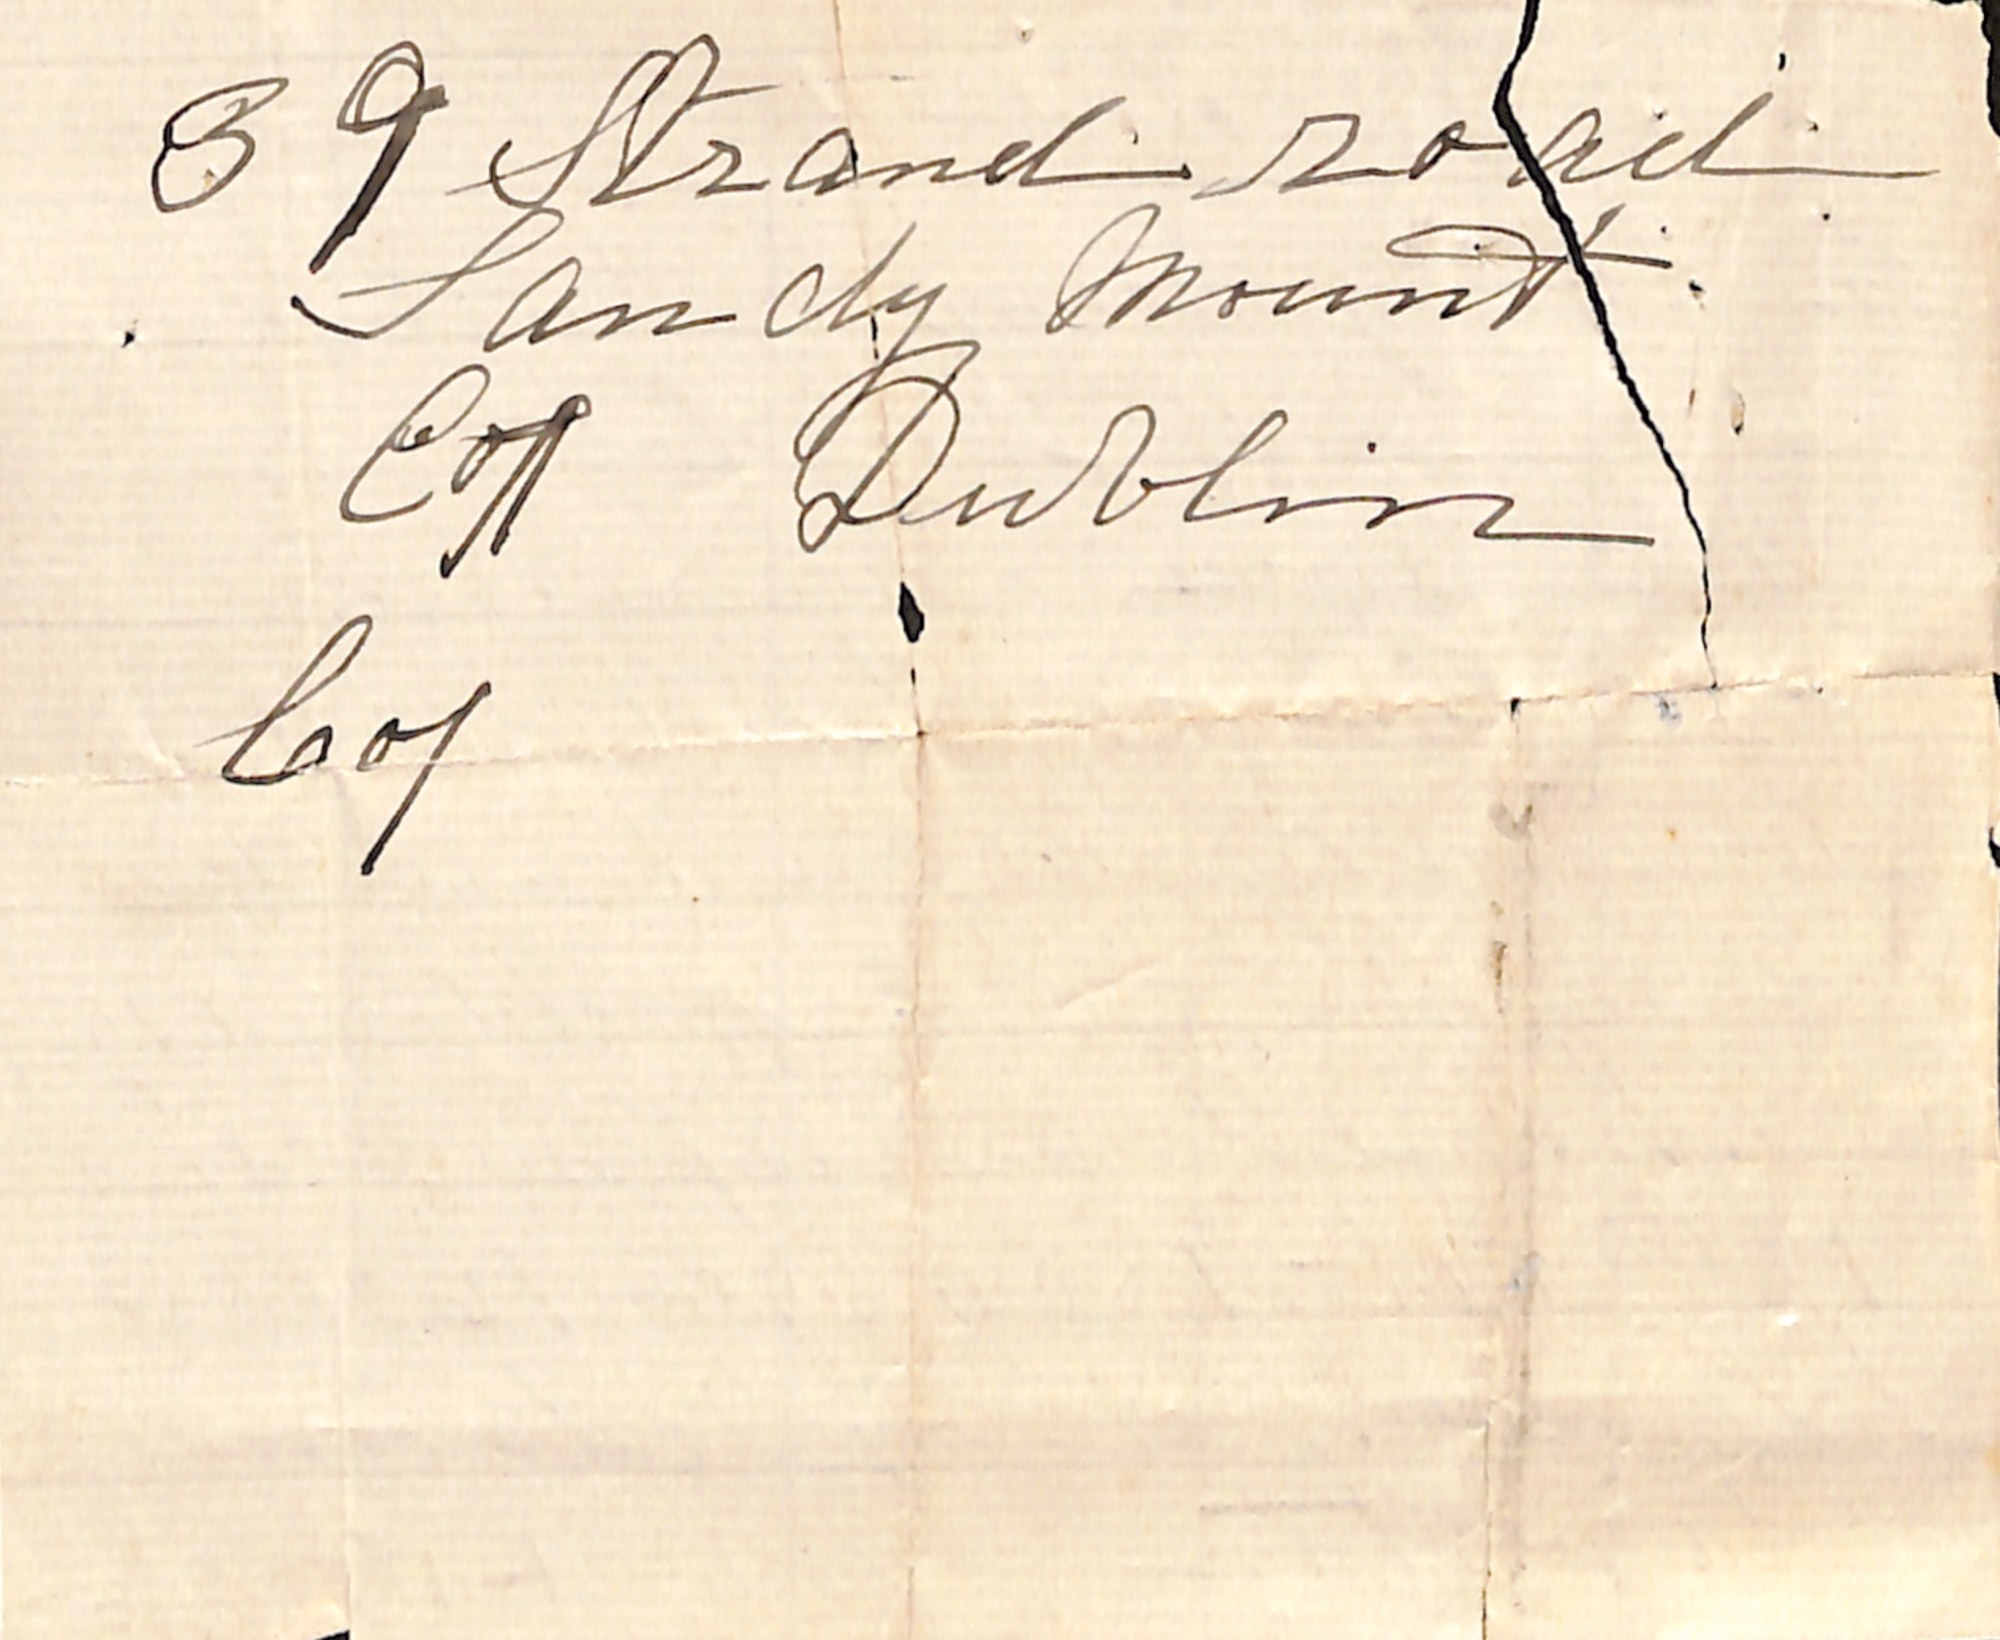 39 Strand road
Sandy Mount
Co// Dublin
Co/